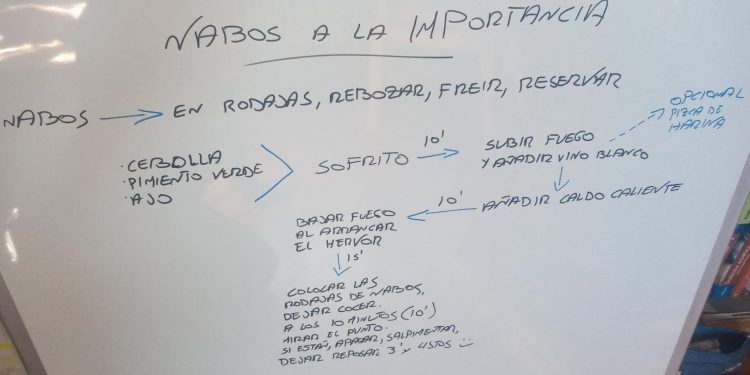 NABOS A LA IMPORTANCIA
NABOS → EN RODAJAS, REBOZAR, FREIR, RESERVAR
· CEBOLLA
· PIMIENTO VERDE
· AJO
SOFRITO
10'
SUBIR FUEGO
Y AÑADIR VINO BLANCO
OPCIONAL
PIZCA DE
HARINA
AÑADIR CALDO CALIENTE
10'
BAJAR FUEGO
AL ARRANCAR
EL HERVOR
15'
COLOCAR LAS
RODAJAS DE NABOS,
DEJAR COCER.
A LOS 10 MINUTOS (10')
MIRAR EL PUNTO.
SI ESTAÑ, APAGAR, SALPIMENTAR,
DEJAR REPOSAR 3' Y LISTOS